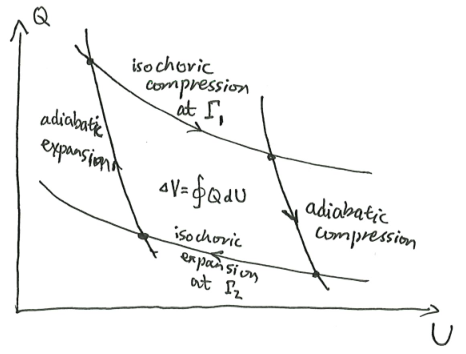 Q
isochoric
compression
at Γ₁
adiabatic
expansion
ΔV=∮QdU
adiabatic
compression
isochoric
expansion
at Γ₂
U